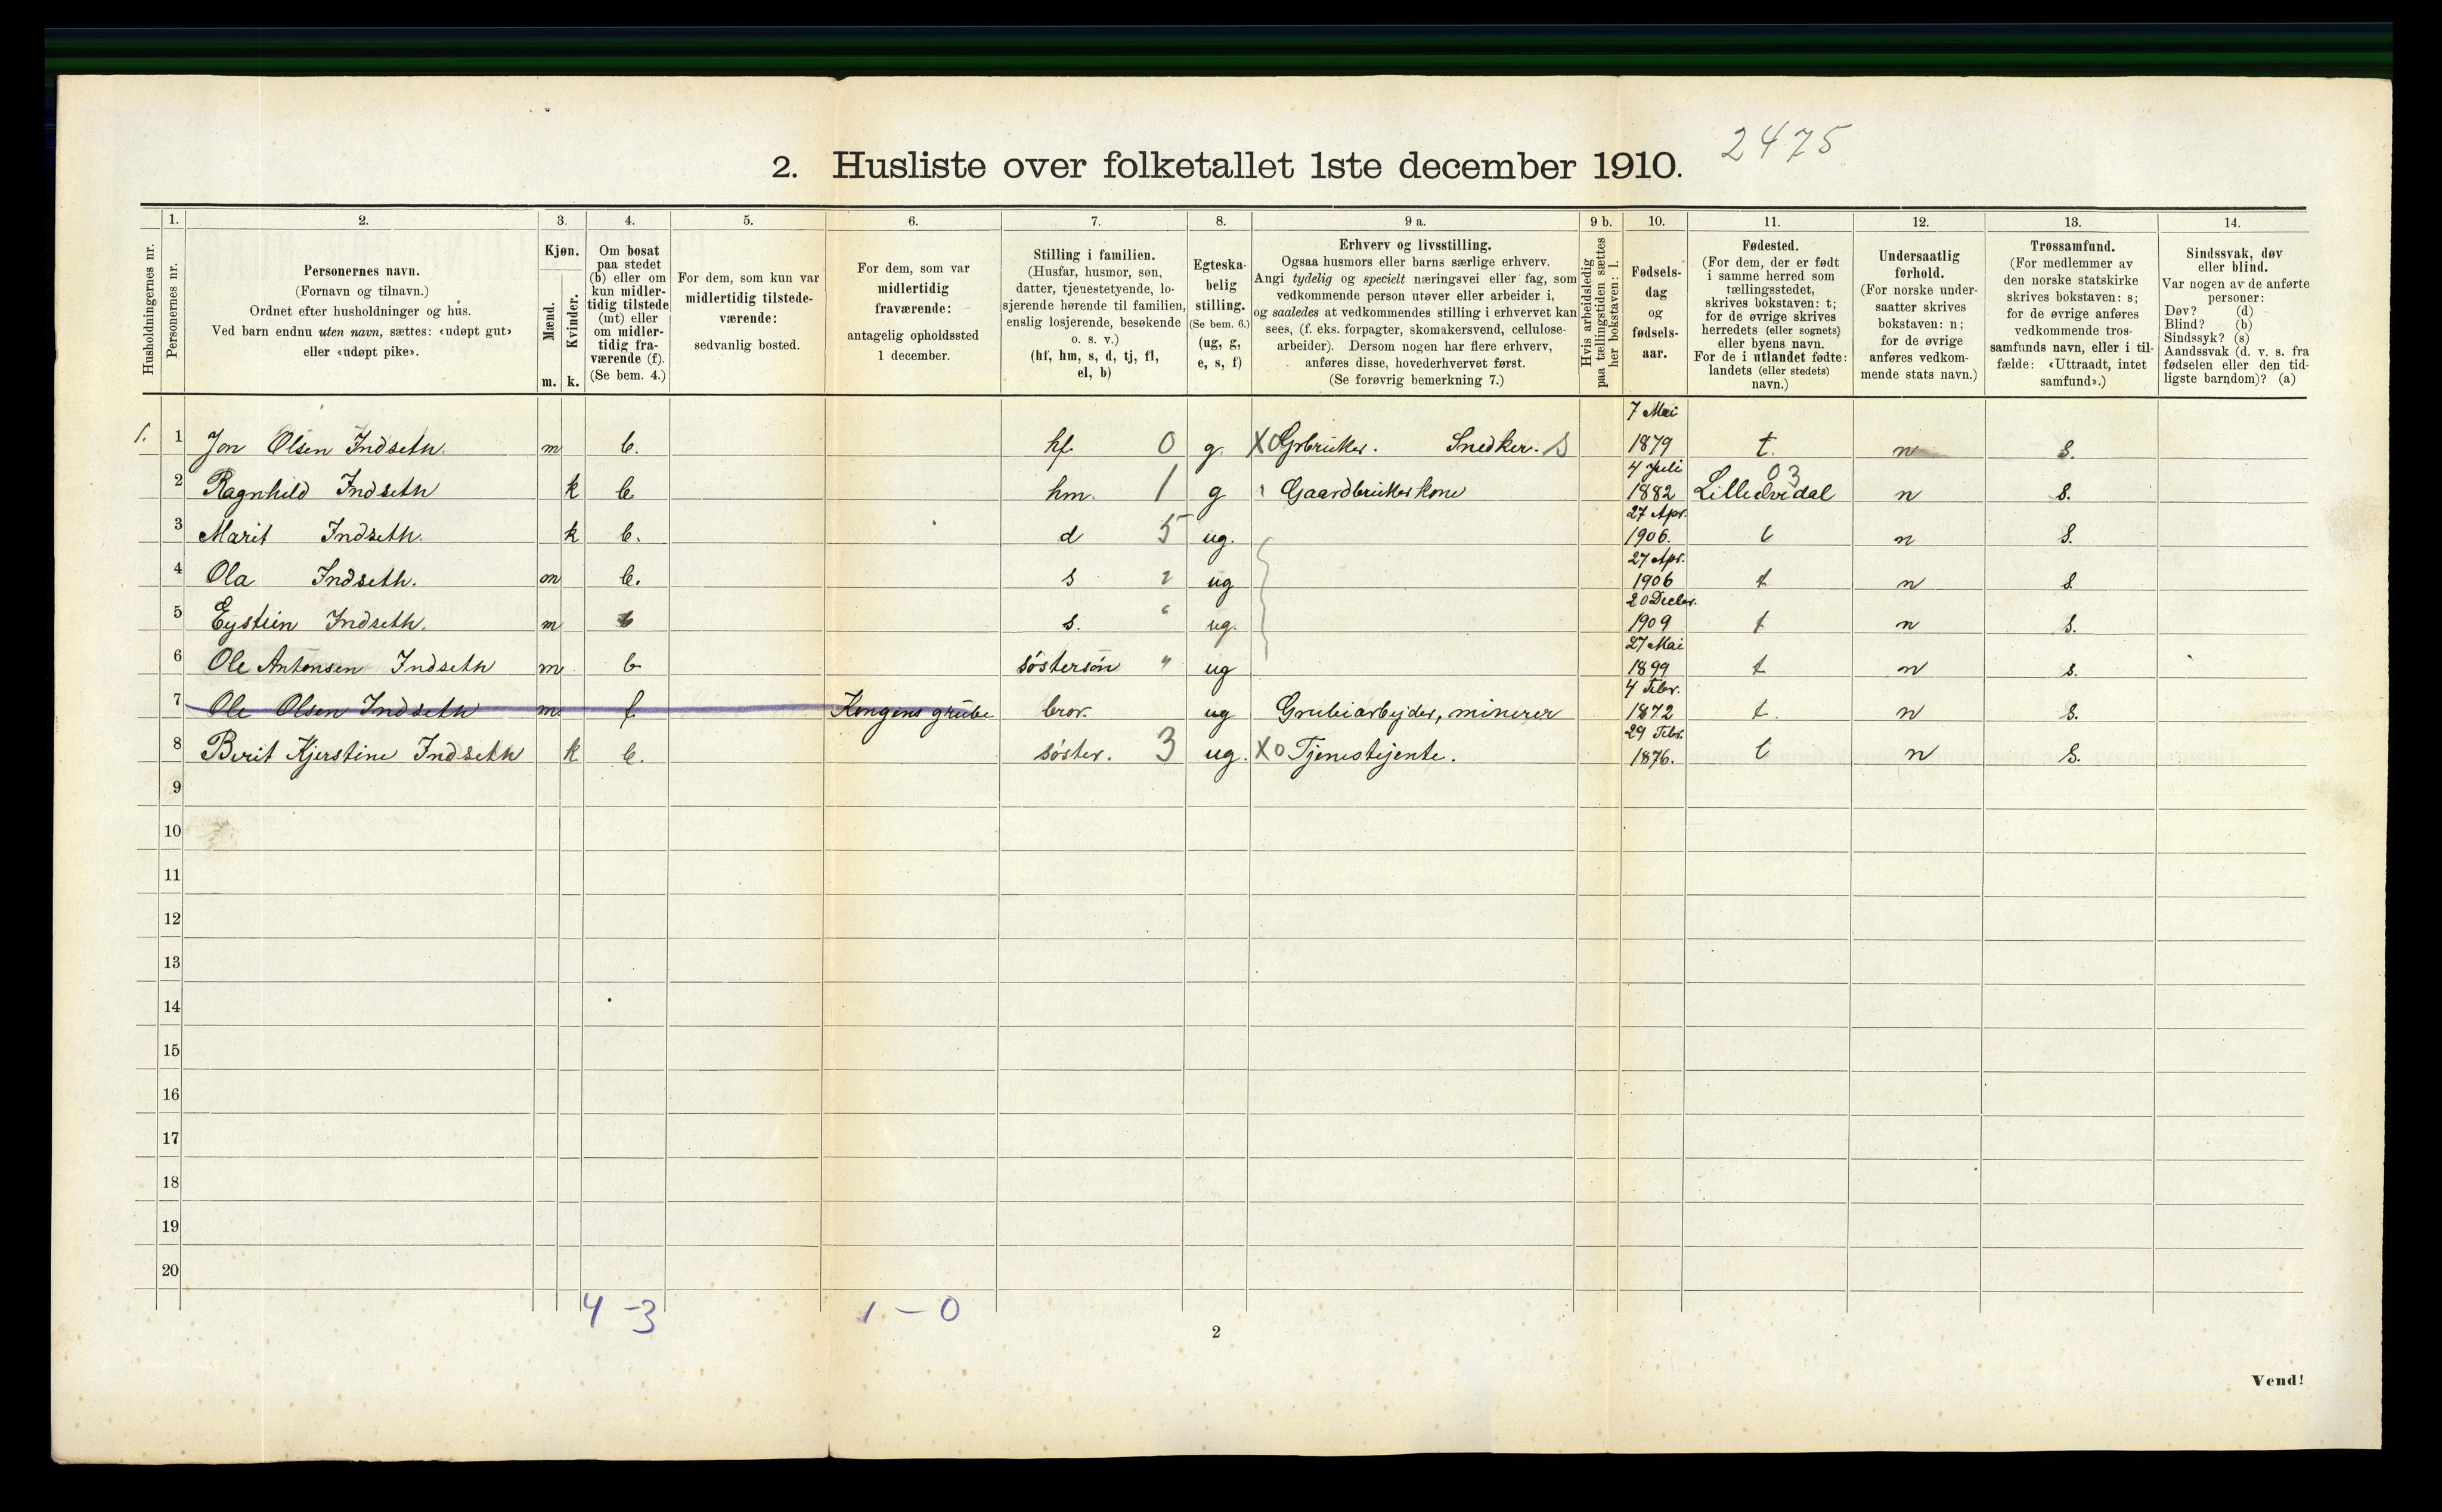 2475
2. Husliste over folketallet 1ste december 1910.
Husholdningernes nr.
1.
Personernes nr.
2.
Personernes navn.
(Fornavn og tilnavn.)
Ordnet efter husholdninger og hus.
Ved barn endnu uten navn, sættes: «udøpt gut»
eller «udøpt pike».
3.
Kjøn.
Mænd.
Kvinder.
m. k.
4.
Om bosat
paa stedet
(b) eller om
kun midler-
tidig tilstede
(mt) eller
om midler-
tidig fra-
værende (f).
(Se bem. 4.)
5.
For dem, som kun var
midlertidig tilstede-
værende:
sedvanlig bosted.
6.
For dem, som var
midlertidig
fraværende:
antagelig opholdssted
1 december.
7.
Stilling i familien.
(Husfar, husmor, søn,
datter, tjenestetyende, lo-
sjerende hørende til familien,
enslig losjerende, besøkende
o. s. v.)
(hf, hm, s, d, tj, fl,
el, b)
8.
Egteska-
belig
stilling.
(Se bem. 6.)
(ug, g,
e, s, f)
9 a.
Erhverv og livsstilling.
Ogsaa husmors eller barns særlige erhverv.
Angi tydelig og specielt næringsvei eller fag, som
vedkommende person utøver eller arbeider i,
og saaledes at vedkommendes stilling i erhvervet kan
sees, (f. eks. forpagter, skomakersvend, cellulose-
arbeider). Dersom nogen har flere erhverv,
anføres disse, hovederhvervet først.
(Se forøvrig bemerkning 7.)
9 b.
Hvis arbeidsledig
paa tællingstiden sættes
her bokstaven: l.
10.
Fødsels-
dag
og
fødsels-
aar.
11.
Fødested.
(For dem, der er født
i samme herred som
tællingsstedet,
skrives bokstaven: t;
for de øvrige skrives
herredets (eller sognets)
eller byens navn.
For de i utlandet fødte:
landets (eller stedets)
navn.)
12.
Undersaatlig
forhold.
(For norske under-
saatter skrives
bokstaven: n;
for de øvrige
anføres vedkom-
mende stats navn.)
13.
Trossamfund.
(For medlemmer av
den norske statskirke
skrives bokstaven: s;
for de øvrige anføres
vedkommende tros-
samfunds navn, eller i til-
fælde: «Uttraadt, intet
samfund».)
14.
Sindssvak, døv
eller blind.
Var nogen av de anførte
personer:
Døv? (d)
Blind? (b)
Sindssyk? (s)
Aandssvak (d. v. s. fra
fødselen eller den tid-
ligste barndom)? (a)
1. 1 Jon Olsen Indseth. m b. hf. 0 g. X0 Grbruker. Snedker. S 7 Mai 1879 t. n s.
2 Ragnhild Indseth k b hm. 1 g Gaardbrukerkone 4 Juli 1882 03 Lilleelvedal n s.
3 Marit Indseth. k b. d 5 ug. 27 Apr. 1906. t n s.
4 Ola Indseth. m b. s ug 27 Apr. 1906 t n s.
5 Eystein Indseth. m b s. ug. 20 Decbr. 1909 t n s.
6 Ole Antonsen Indseth m b søstersøn " ug 27 Mai 1899 t n s.
7 Ole Olsen Indseth m. f Kongens grube bror. ug Grubearbejder, minerer 4 Febr. 1872 t. n s.
8 Berit Kjerstine Indseth k b. søster. 3 ug. X0 Tjenestejente. 29 Febr. 1876. t n s.
9
10
11
12
13
14
15
16
17
18
19
20
4 - 3 1 - 0
2
Vend!